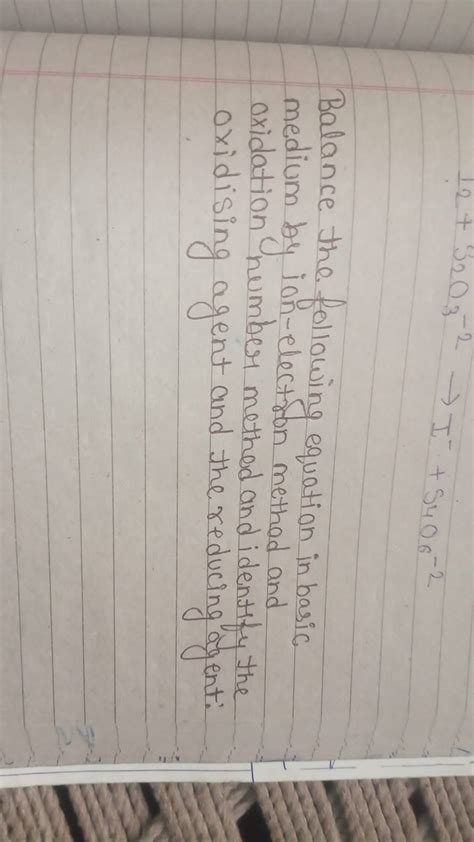 I2 + S2O3⁻² → I⁻ + S4O6⁻²
Balance the following equation in basic
medium by ion-electron method and
oxidation number method and identify the
oxidising agent and the reducing agent: